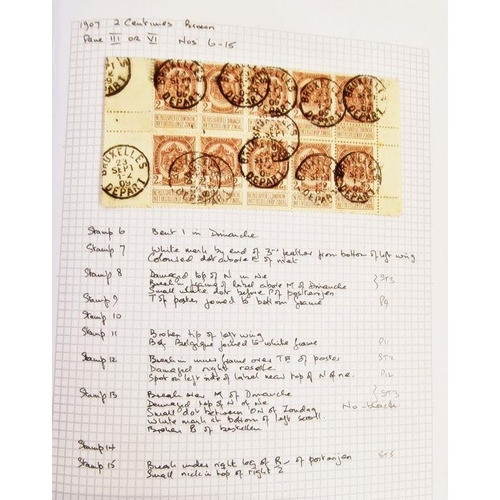 1907 2 Centimes Brown
Pane III or VI Nos 6-15
BRUXELLES
23
SEPT
1-2
09
DEPART
Stamp 6 Bent 1 in Dimanche
Stamp 7 White mark by end of 3rd feather from bottom of left wing
Coloured dot above E of niet
Stamp 8 Damaged top of N in Ne
Break in framing of label above M of Dimanche } ST3
Small white dot before P of postranjen
Stamp 9 T of posten joined to bottom frame P9
Stamp 10
Stamp 11 Broken tip of left wing
B of Belgique joined to white frame P11
Stamp 12 Break in inner frame over TE of postes ST2
Damaged right rosette
Spot on left side of label near top of N A ne. P12
Stamp 13 Break near M of Dimanche } ST3
Damaged top of N of Ne
Small dot between ON of Zondag No-black
White mark at bottom of left scroll
Broken B of bestellen
Stamp 14
Stamp 15 Break under right leg of R of postranjen ST5
Small nick in top of right 2